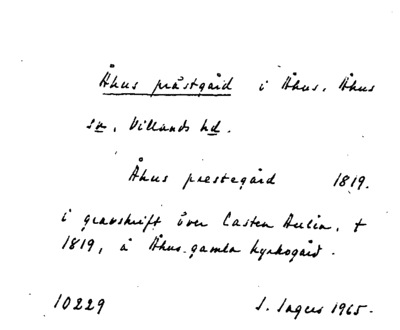 Åhus prästgård i Åhus, Åhus
sn, Villands hd.
Åhus prestegård 1819.
i gravskrift över Casten Aulin, †
1819, å Åhus gamla kyrkogård.
10229 S. Ingers 1965.